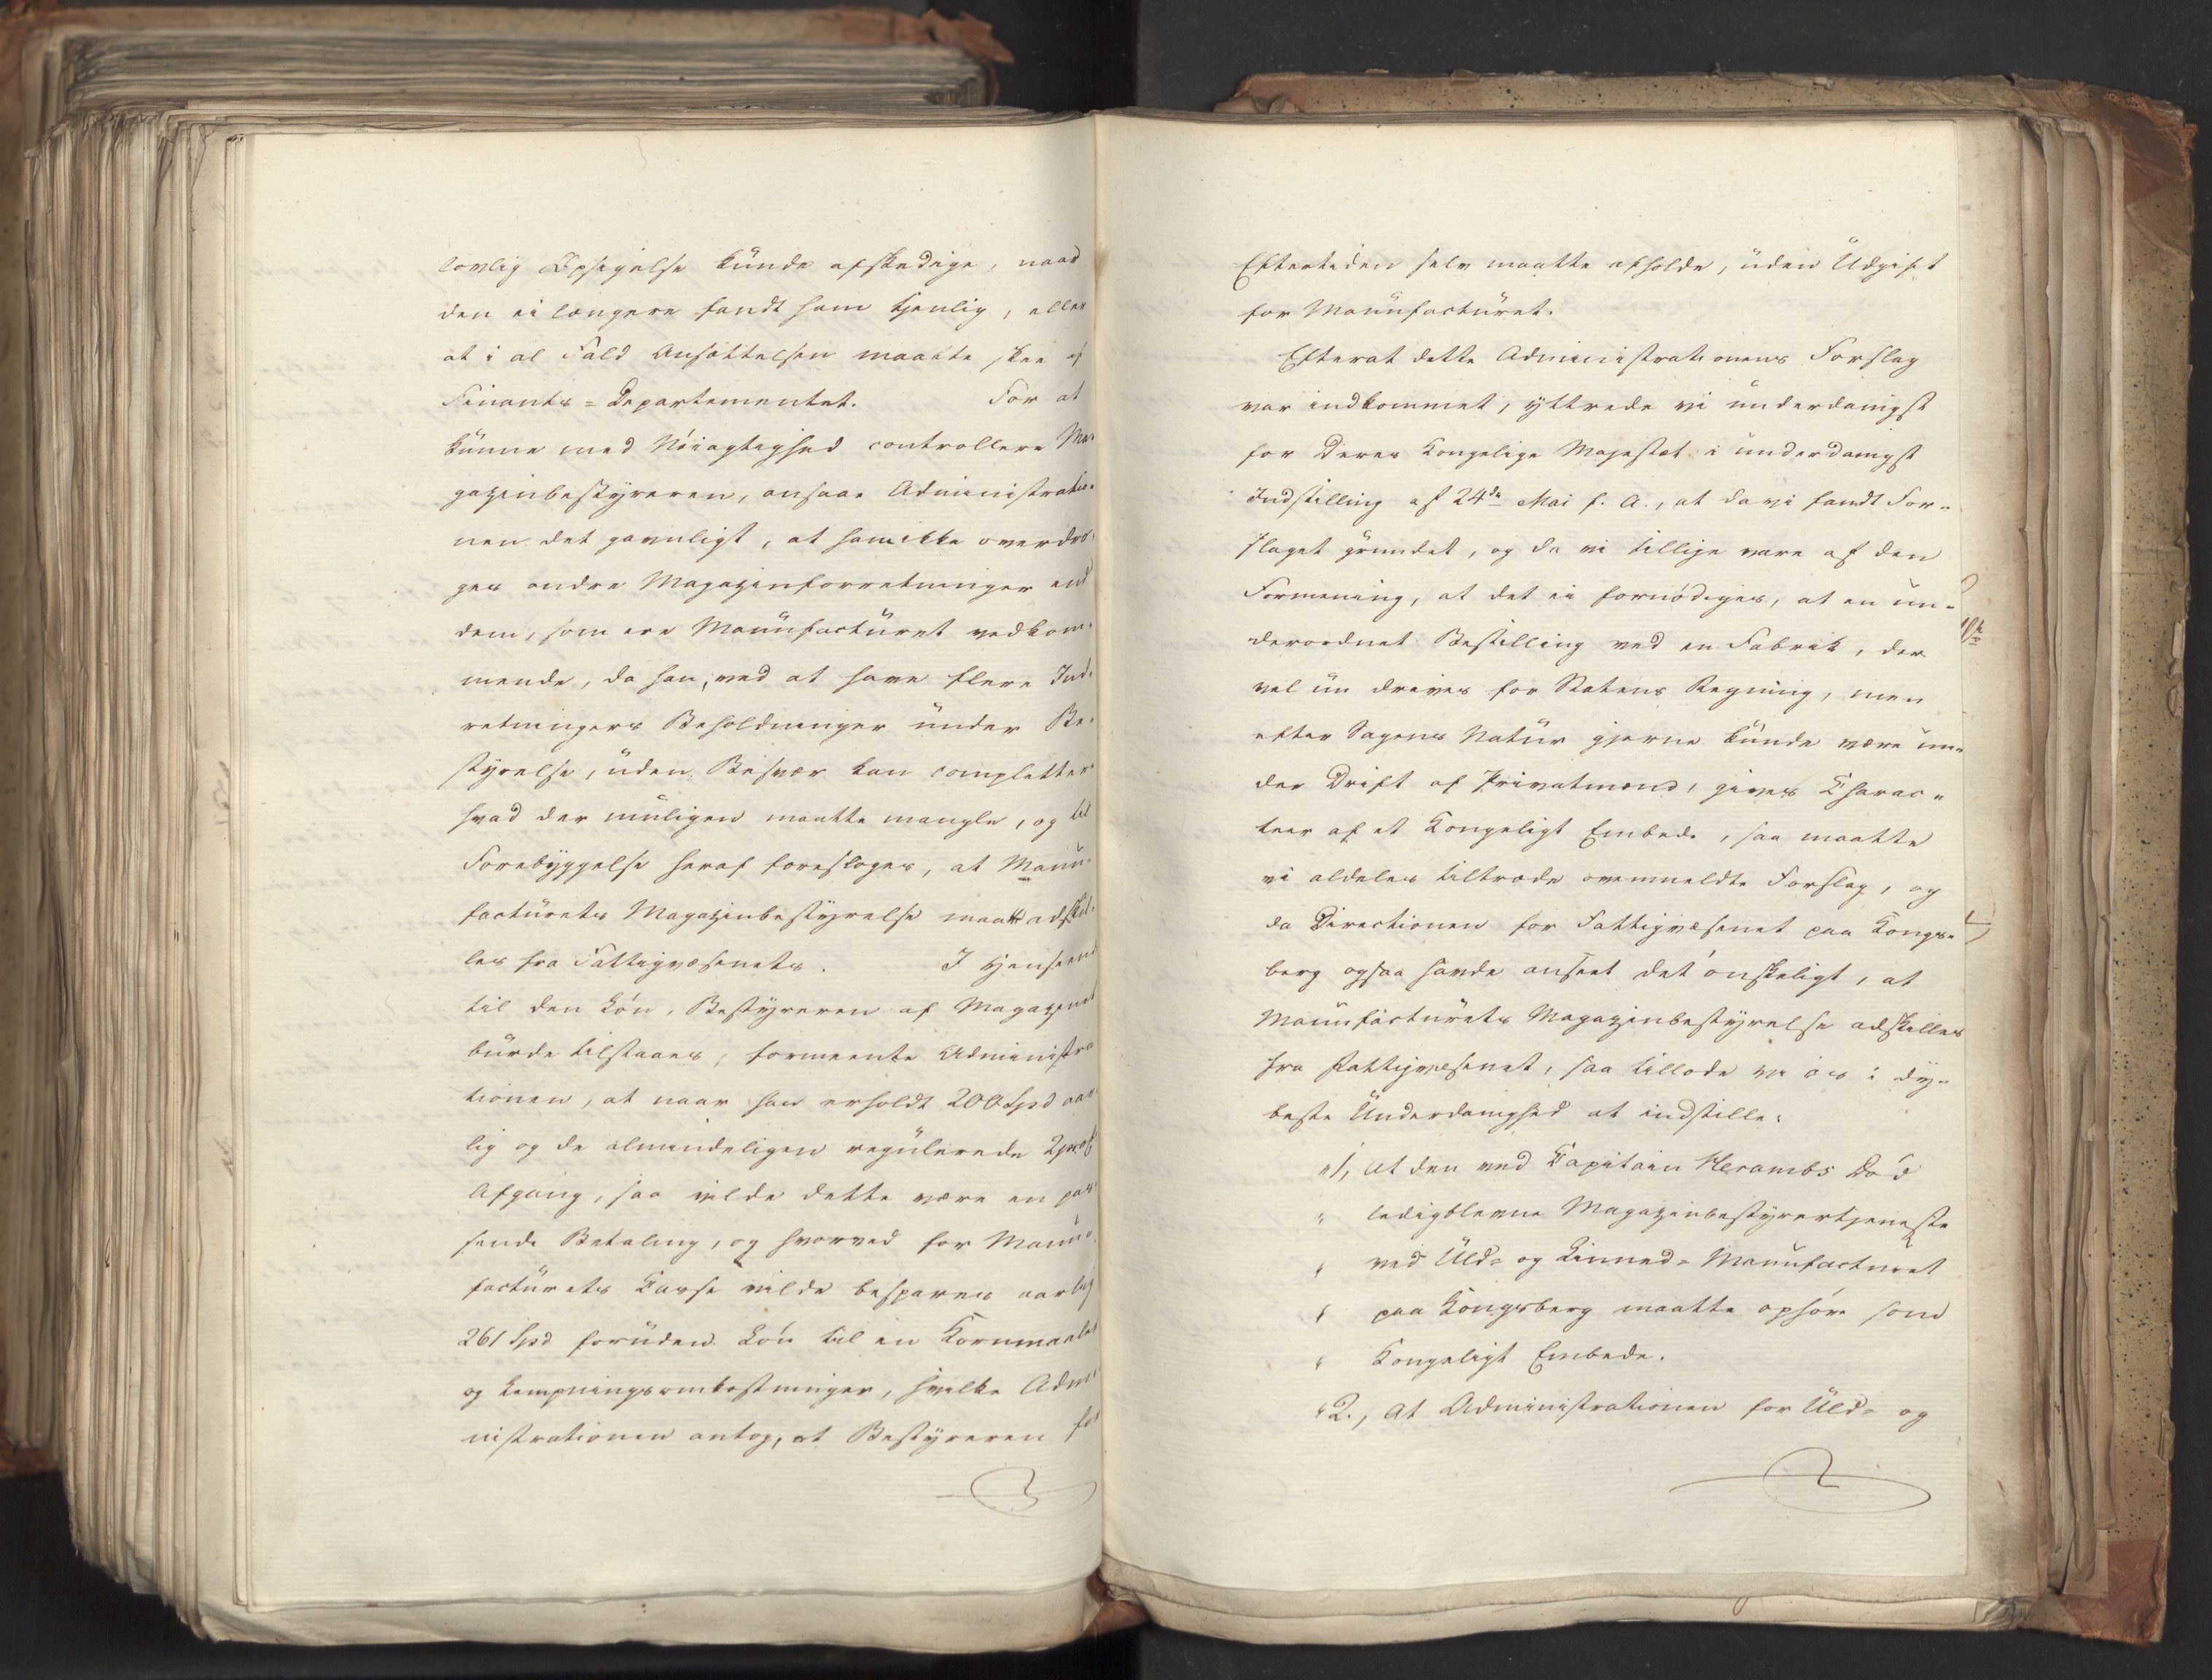 lovlig Opsigelse kunde afskedige, naar
den ei længere fandt ham tjenlig, eller
at i al Fald Ansættelsen maatte skee af
Finants-Departementet. For at
kunne med Nøiagtighed controllere Ma-
gazinbestyreren, ansaae Administratio-
nen det gavnligt, at ham ikke overdra-
ges andre Magazinforretninger end
dem, som ere Manufacturet vedkom-
mende, da han, ved at have flere Ind-
retningers Beholdninger under Be-
styrelse, uden Besvær kan complettere
hvad der muligen maatte mangle, og til
Forebyggelse heraf foresloges, at Manu-
facturets Magazinbestyrelse maatte adskil-
les fra Fattigvæsenets. I Henseende
til den Løn, Bestyreren af Magazinet
burde tilstaaes, formeente Administra
tionen, at naar han erholdt 200 Spd aar-
lig og de almindeligen regulerede 2 proCt
Afgang, saa vilde dette være en pas-
sende Betaling, og hvorved for Manu-
facturets Casse vilde bespares aarlig
261 Spd foruden Løn til en Kornmaaler
og Kempningsomkostninger, hvilke Admi
nistrationen antog, at Bestyreren for
Eftertiden selv maatte afholde, uden Udgift
for Manufacturet.
Efterat dette Administrationens Forslag
var indkommet, yttrede vi underdanigst
for Deres Kongelige Majestæt i underdanigst
Indstilling af 24de Mai f. A., at da vi fandt For-
slaget grundet, og da vi tillige vare af den
Formening, at det ei fornødiges, at en un-
derordnet Bestilling ved en Fabrik, der
vel nu drives for Statens Regning, men
efter Sagens Natur gjerne kunde være un-
der Drift af Privatmænd, gives Charac-
teer af et Kongeligt Embede, saa maatte
vi aldeles tiltræde ovenmeldte Forslag, og
da Directionen for Fattigvæsenet paa Kongs-
berg ogsaa havde anseet det ønskeligt, at
Manufacturets Magazinbestyrelse adskilles
fra Fattigvæsenet, saa tillode vi os i dy-
beste Underdanighed at indstille:
"1, At den ved Capitain Herambs Død
" ledigblevne Magazinbestyrertjeneste
" ved Uld- og Linned-Manufacturet
" paa Kongsberg maatte ophøre som
" Kongeligt Embede.
"2., At Administrationen for Uld- og